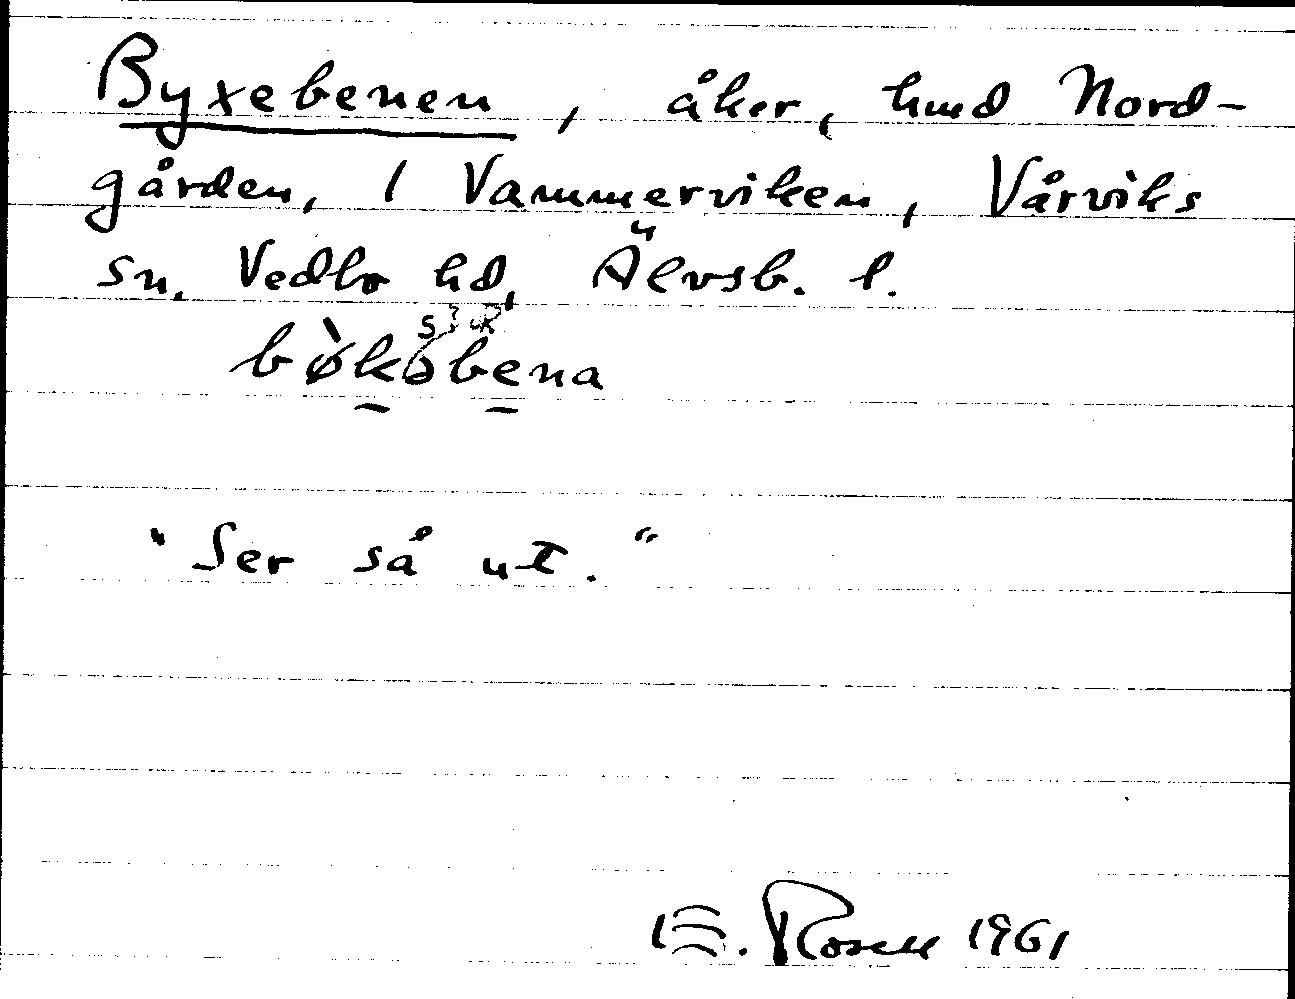 Byxebenen, åker, hmd Nord-
gården, 1 Vammerviken, Vårviks
sn. Vedbo hd, Älvsb. l.
"Ser så ut."
E. Rosell 1961